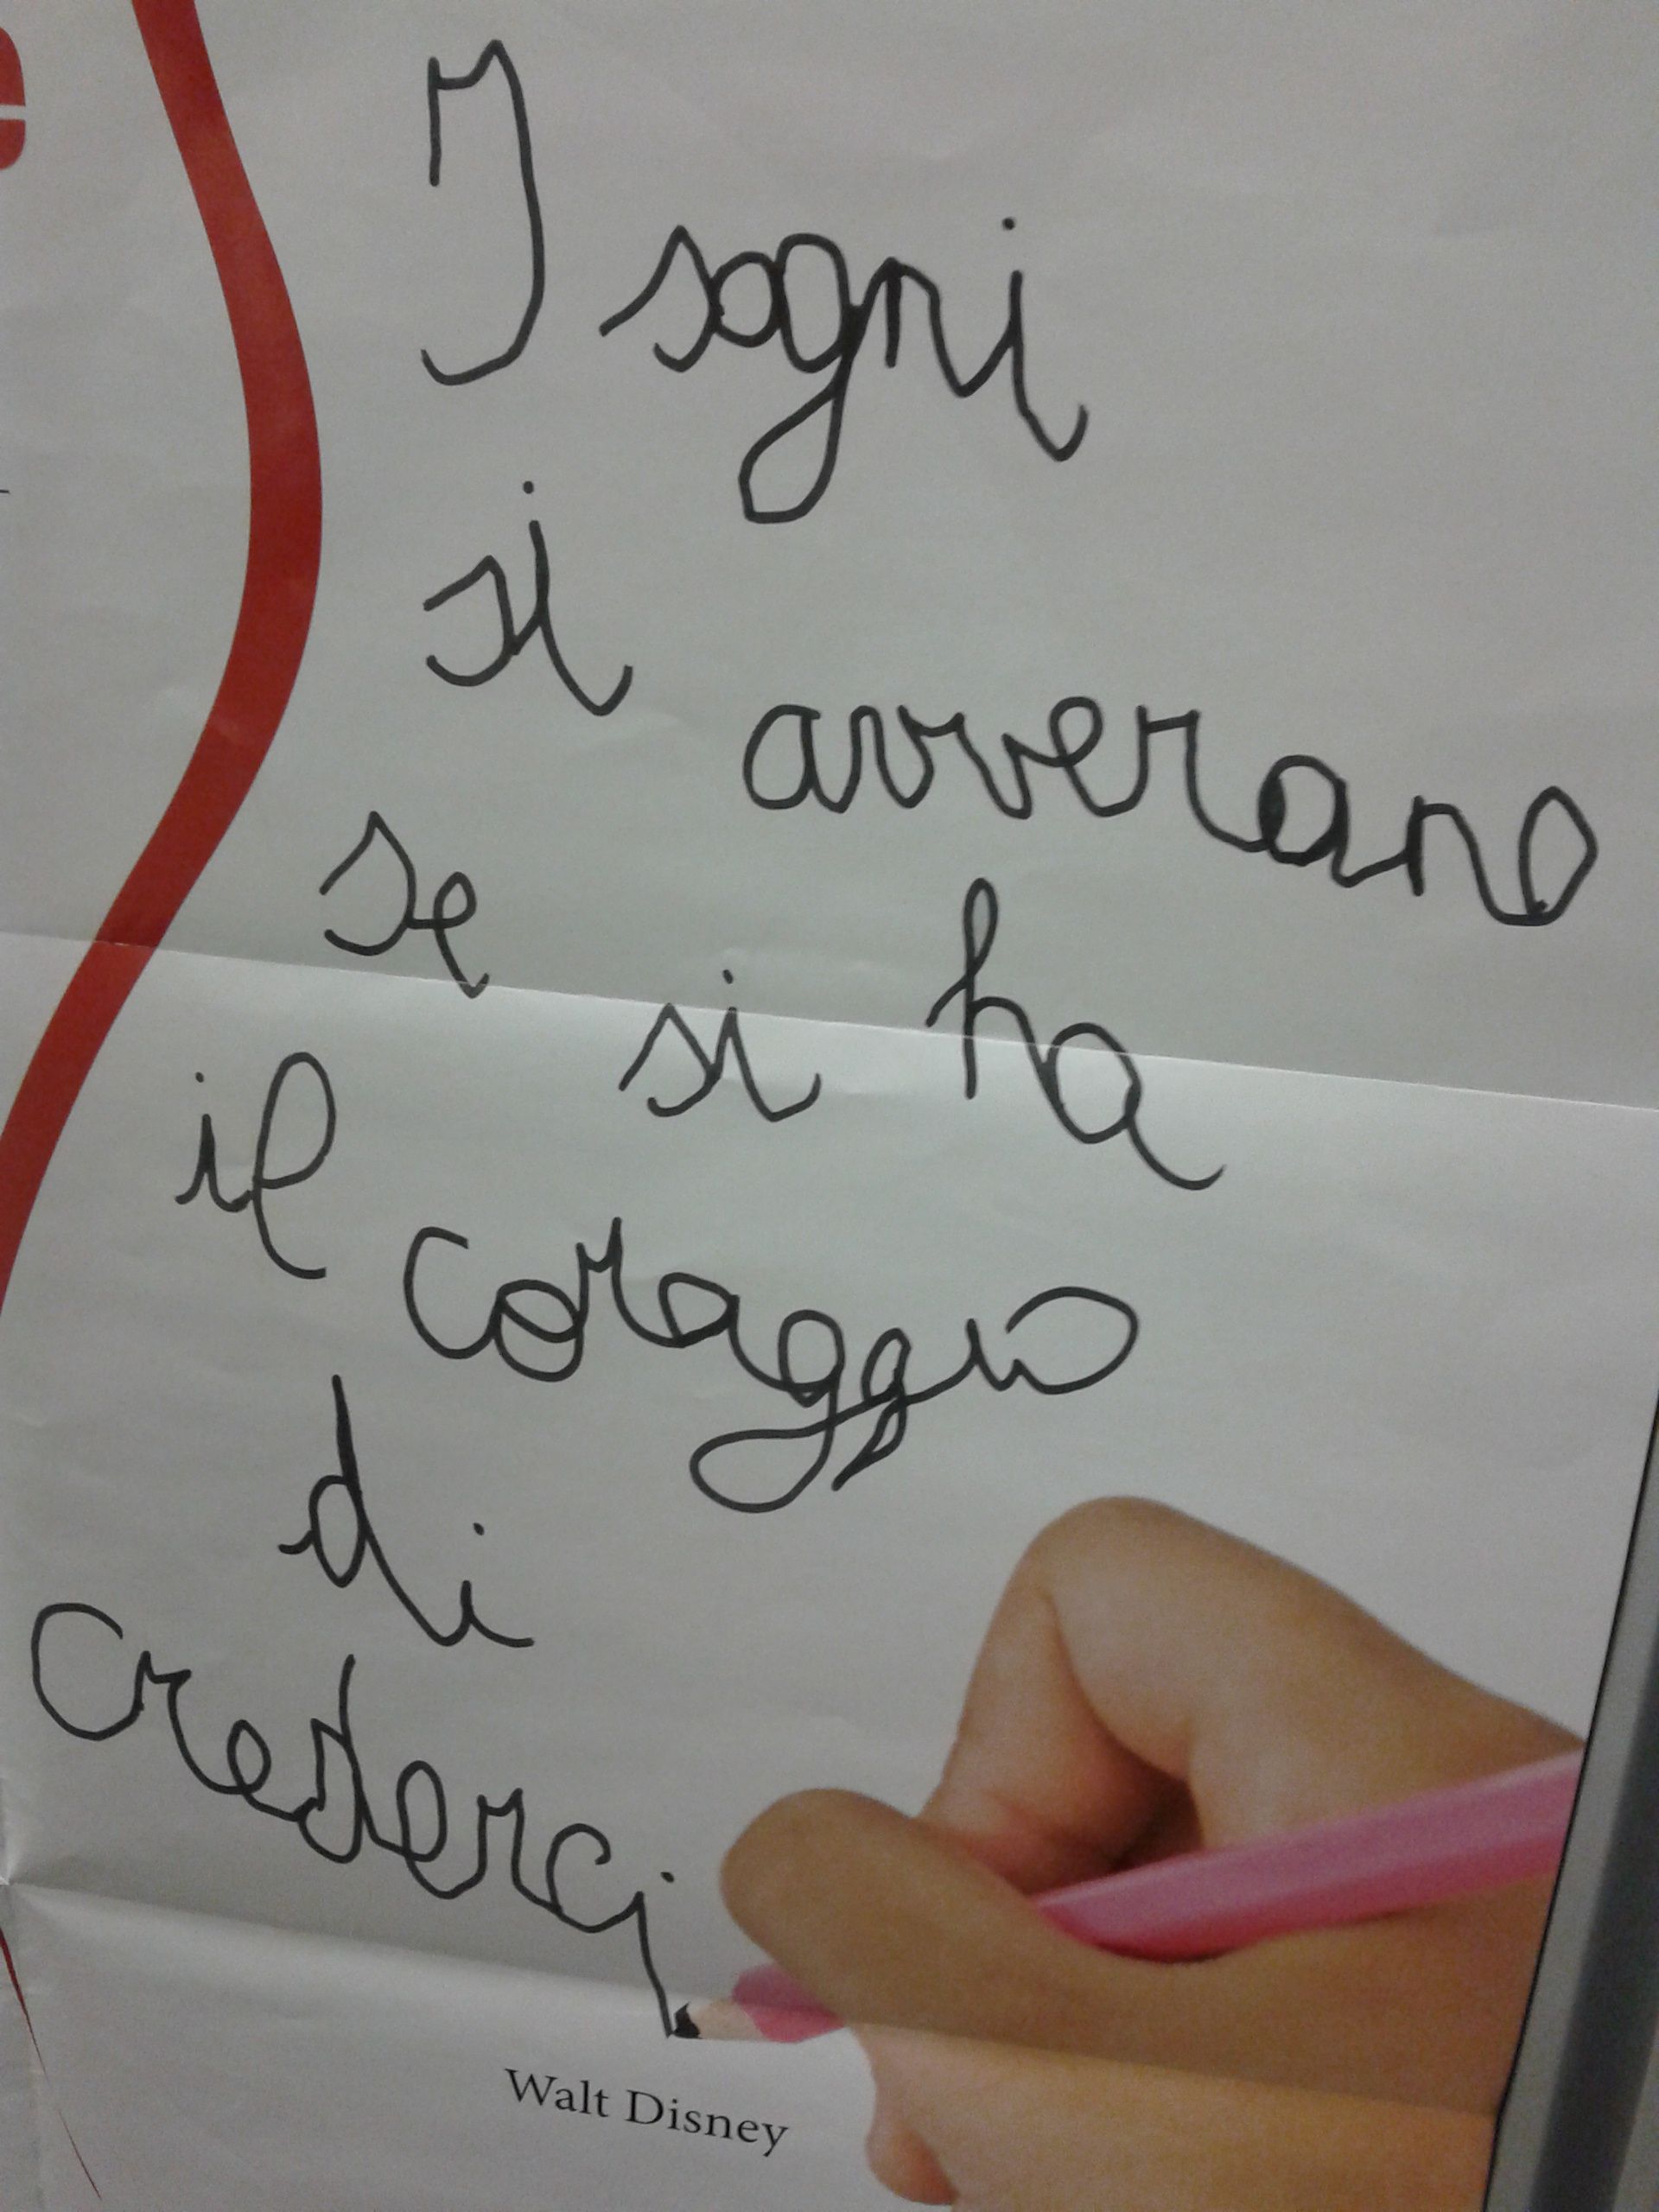 I sogni
si avverano
se si ha
il coraggio
di
crederci
Walt Disney